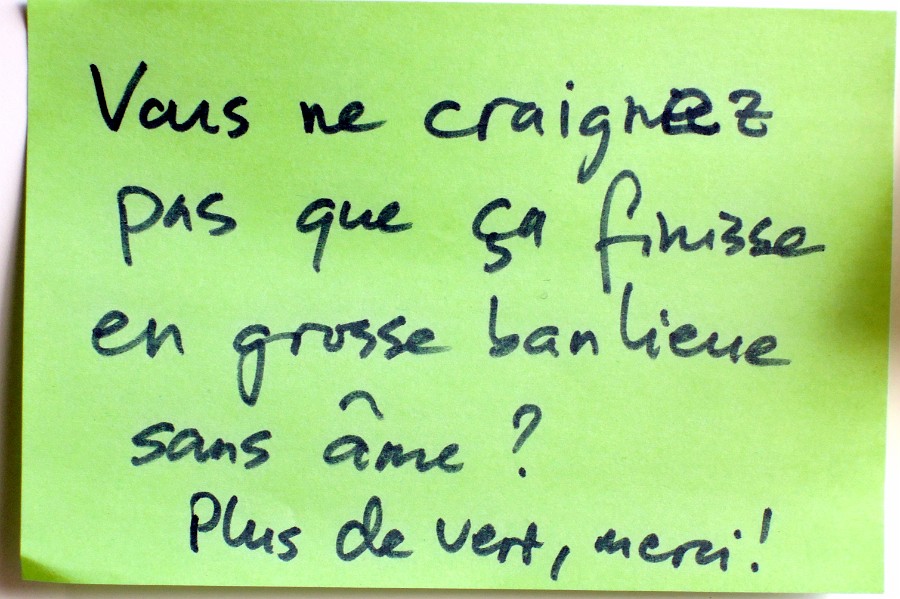 Vous ne craignez
pas que ça finisse
en grosse banlieue
sans âme ?
Plus de vert, merci !